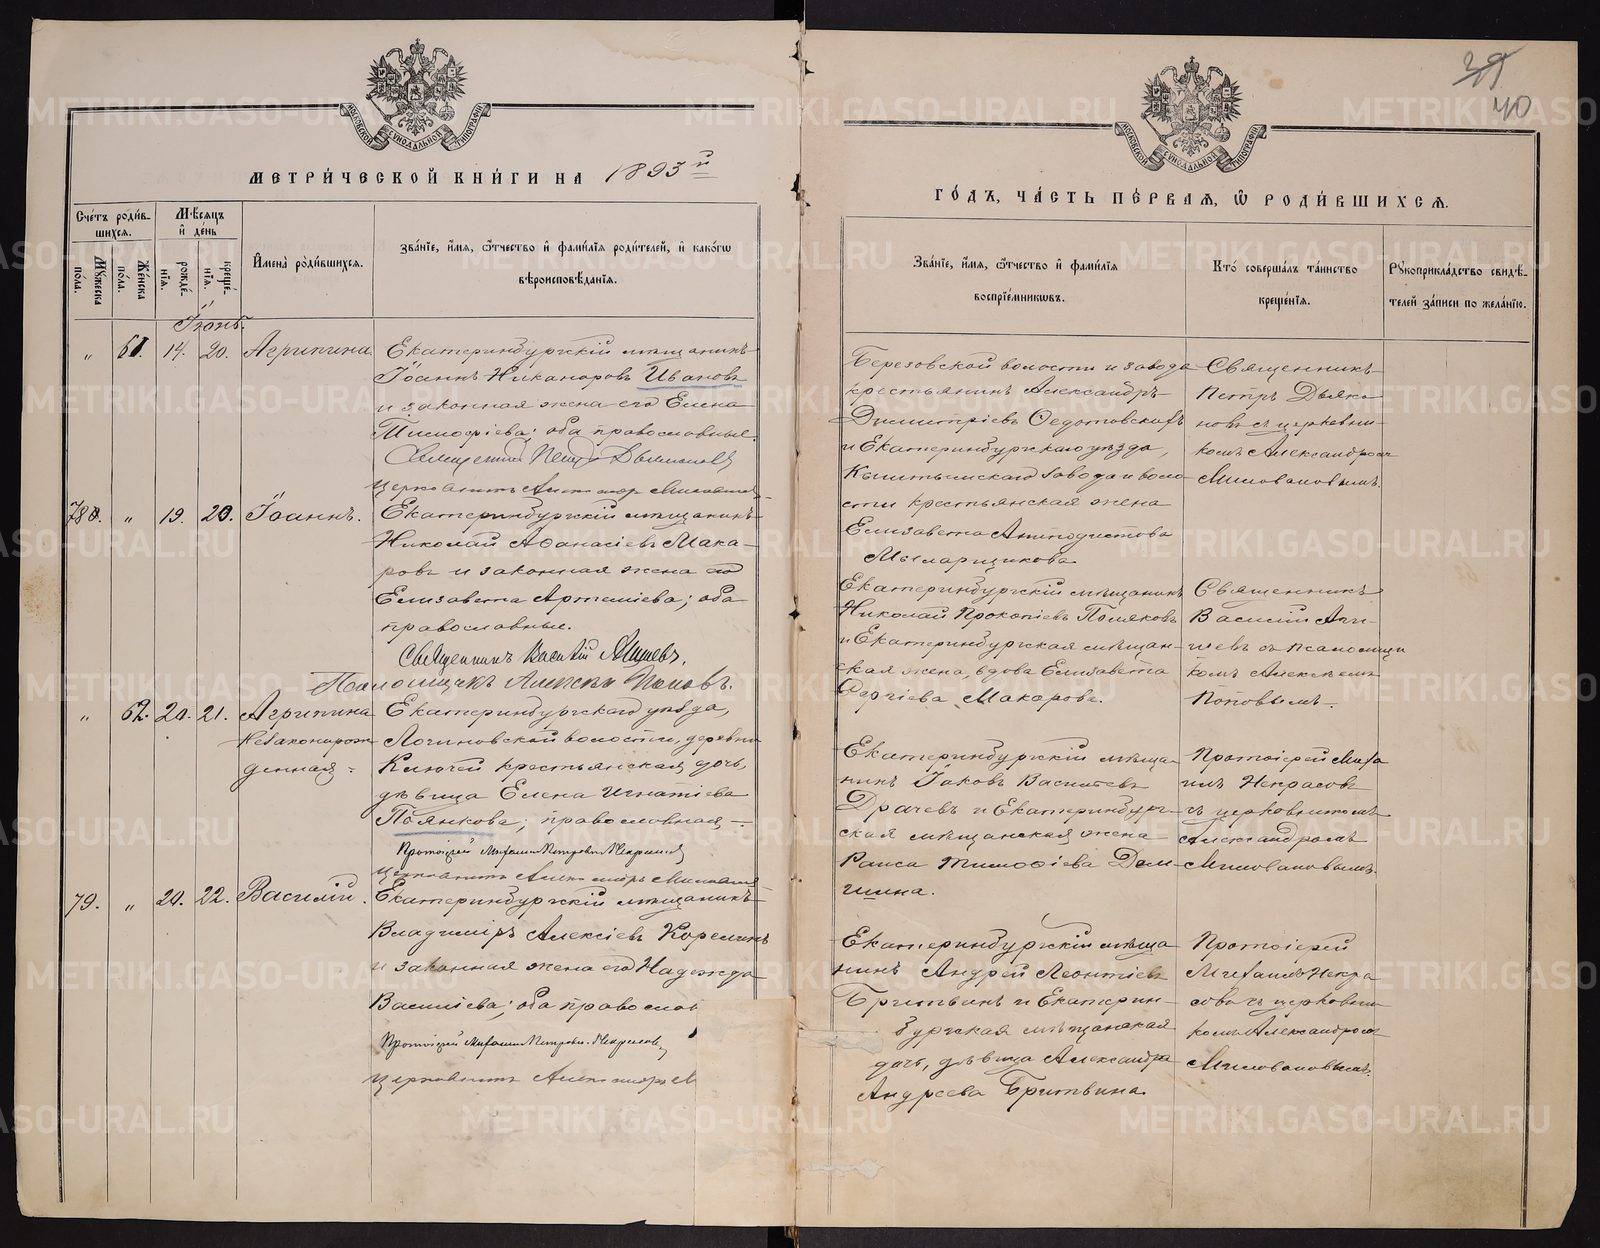 МЕТРИ́ЧЕСКОЙ КНИ́ГИ НА 1893й
Сче́тъ роди́в-
шихсѧ.
Мѣсѧцъ
и҆ де́нь
Мꙋжеска
по́ла.
Же́нска
по́ла.
рожде́-
нїѧ.
креще́-
нїѧ.
И҆мена̀ роди́вшихсѧ.
Зва́нїе, и҆́мѧ, ѻ҆́тчество и҆ фами́лїѧ роди́телей, и҆ како́гѡ
вѣроисповѣ́данїѧ.
Іюнь.
" 61. 14. 20. Агрипина Екатеринбургскій мѣщанинъ
Іоаннъ Никаноровъ Ивановъ
и законная жена его Елена
Тимофіева; оба православные.
Священникъ Петръ Дьяконовъ
Церковникъ Александръ Миловановъ
78. " 19. 20. Іоаннъ. Екатеринбургскій мѣщанинъ
Николай Аѳанасіевъ Мака-
ровъ и законная жена его
Елизавета Артеміева; оба
православные.
Священникъ Василій
Псаломщикъ Алексѣй Поповъ.
" 62. 20. 21. Агрипина Екатеринбургскаго уѣзда,
Незаконорож- Логиновской волости, деревни
денная Ключей крестьянская дочь,
дѣвица Елена Игнатіева
Поянкова; православная
Протоіерей Михаилъ Петровъ Некрасовъ
Церковникъ Александръ Миловановъ
79. " 20. 22. Василій. Екатеринбургскій мѣщанинъ
Владиміръ Алексіевъ Корелинъ
и законная жена его Надежда
Василіева; оба православ
Протоіерей Михаилъ Петровъ Некрасовъ
Церковникъ Александръ М
39
40
ГО́ДЪ, ЧА́СТЬ ПЕ́РВАѦ, Ѡ҆ РОДИ́ВШИХСѦ.
Зва́нїе, и҆́мѧ, ѻ҆́тчество и҆ фами́лїѧ
воспрїе́мникѡвъ.
Кто̀ соверша́лъ та́инство
креще́нїѧ.
Рꙋкоприкла́дство свидѣ́-
телей за́писи по жела́нїю.
Березовской волости и завода
крестьянинъ Александръ
Димитріевъ Федотовскихъ
и Екатеринбургскаго уѣзда,
Кыштымскаго завода и воло-
сти крестьянская жена
Елизавета Аполодистова
Мыларщикова
Священникъ
Петръ Дьяко-
новъ съ церковни-
комъ Александромъ
Миловановымъ.
Екатеринбургскій мѣщанинъ
Николай Прокопіевъ Поляковъ
и Екатеринбургская мѣщан-
ская жена, вдова Елизавета
Сергіева Макарова.
Священникъ
Василій Аги-
шевъ съ псаломщи-
комъ Алексѣемъ
Поповымъ.
Екатеринбургскій мѣща-
нинъ Іаковъ Василіевъ
Драчевъ и Екатеринбург-
ская мѣщанская жена
Раиса Тимоѳіева Дем-
шина.
Протоіерей Миха-
илъ Некрасовъ
съ церковникомъ
Александромъ
Миловановымъ.
Екатеринбургскій мѣща-
нинъ Андрей Леонтіевъ
Бритвинъ и Екатерин-
бургская мѣщанская
дочь, дѣвица Александра
Андреева Бритвина.
Протоіерей
Михаилъ Некра-
совъ съ церковни-
комъ Александромъ
Миловановымъ.